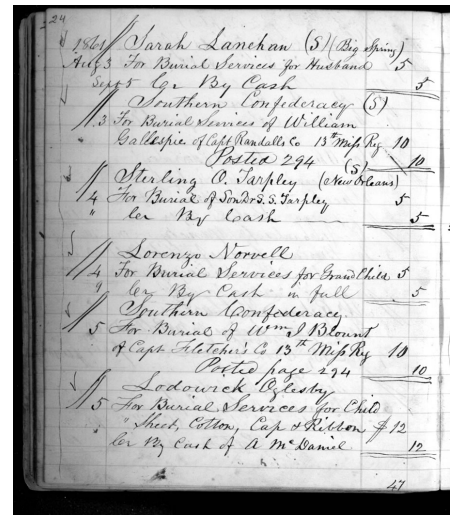 24
1861 Sarah Lanehan (S) (Big Spring)
Aug 3 For Burial Services for Husband 5
Sept 5 Cr By Cash 5
Southern Confederacy (S)
3 For Burial Services of William
Gallespie of Capt Randalls Co 13th Miss Reg 10
Posted 294 10
Sterling O. Tarpley (S) (New Orleans)
4 For Burial of Son Dr S. S. Tarpley 5
" Cr By Cash 5
Lorenzo Norvell
4 For Burial Services for GrandChild 5
9 Cr By Cash in full 5
Southern Confederacy
5 For Burial of Wm J Blount
of Capt Fletcher's Co 13th Miss Reg 10
Posted page 294 10
Lodowick Oglesby
5 For Burial Services for Child
" Sheet, Cotton, Cap & Ribbon $12
Cr By Cash of A McDaniel 12
47